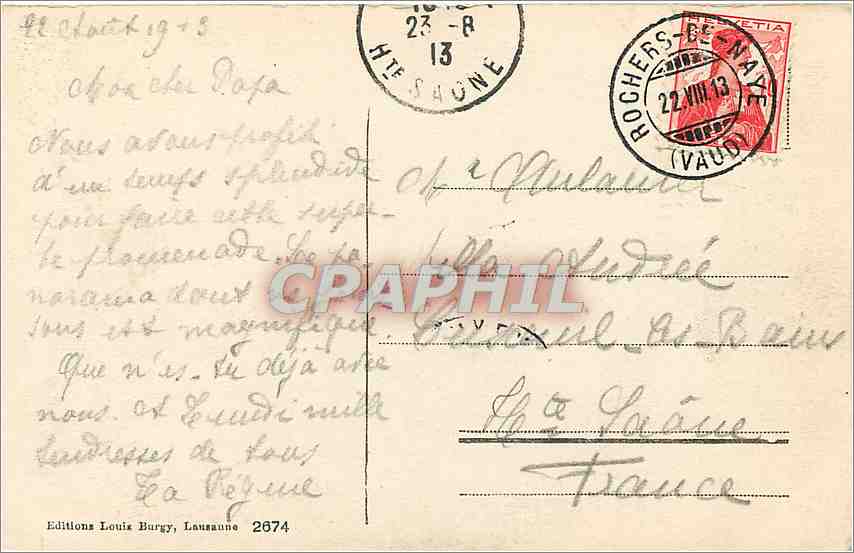 22 Août 1913
Mon cher Papa
Nous avons profité
d'un temps splendide
pour faire cette super-
be promenade. Le pa-
norama dont nous
sons est magnifique.
Que n'es-tu déjà avec
nous. À lundi mille
tendresses de tous
Ta Régine
Editions Louis Burgy, Lausanne 2674
23 -8
13
HTE SAONE
HELVETIA
ROCHERS-DE-NAYE
22.VIII.13
(VAUD)
Mr
Villa Andrée
Luxeuil-les-Bains
Hte Saône
France
CPAPHIL